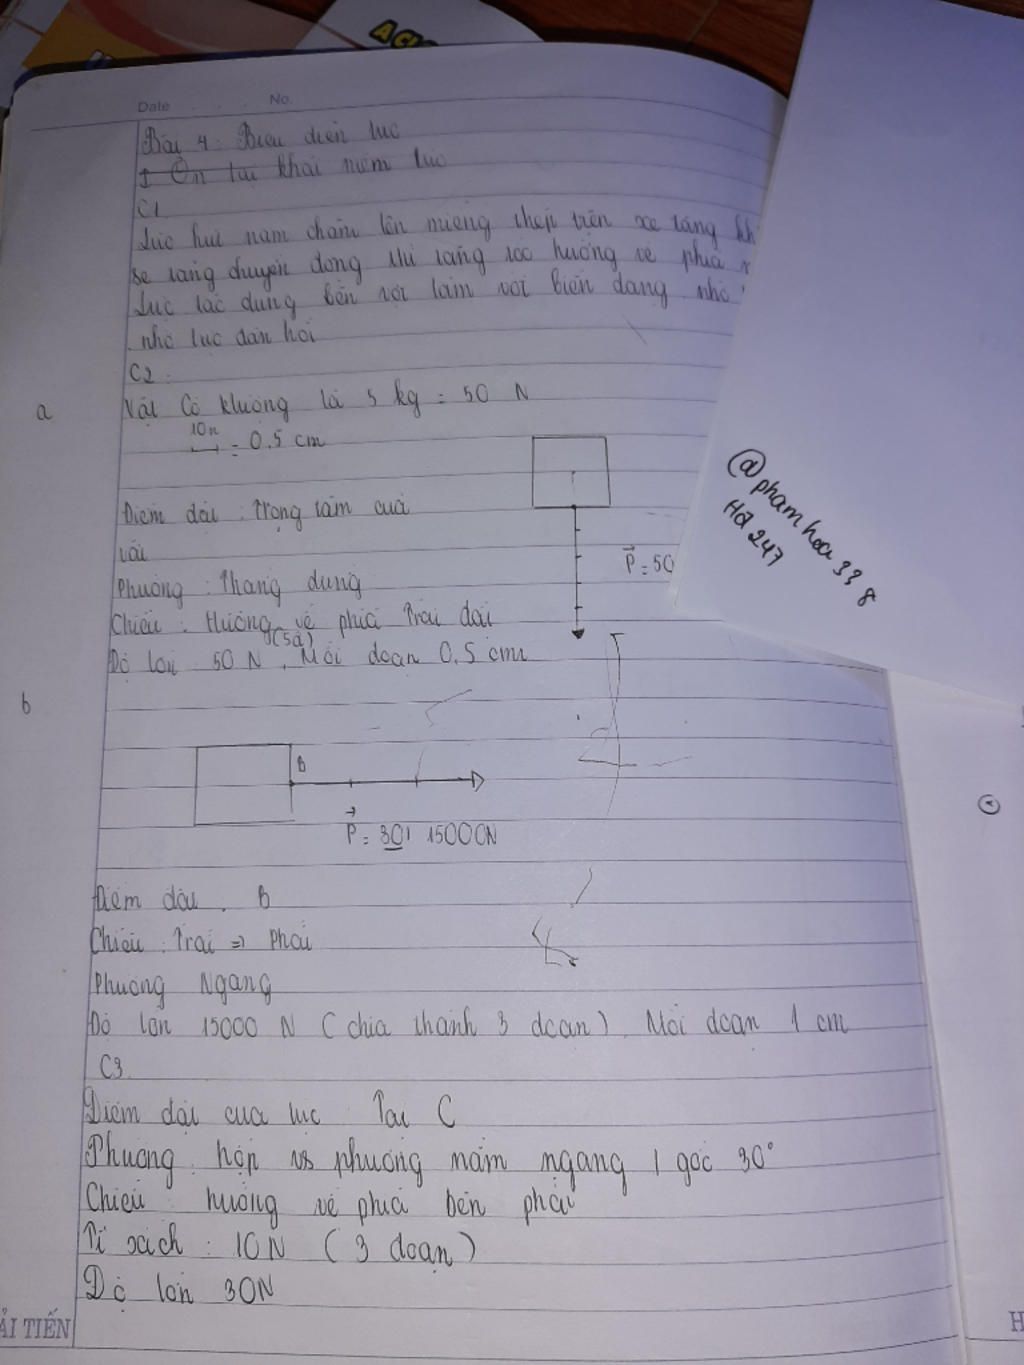 ACI
Date No.
Bài 4: Biểu diễn lực
I Ôn lại khái niệm lực
C1
Lực hút nam châm lên miếng thép trên xe lăng kh
xe lăng chuyển động thì tăng tốc hướng về phía
Lực tác dụng bên vợt làm vợt biến dạng nhờ
nhờ lực đàn hồi
C2:
a
Vật có klượng là 5 kg = 50 N
10N = 0.5 cm
Điểm đặt: trọng tâm của
vật
P = 50
Phương: Thẳng đứng
Chiều: Hướng về phía Trái đất
(5đ)
Độ lớn 50 N, Mỗi đoạn 0.5 cm
b
B
P = 30! 15000N
Điểm đặt: B
Chiều: Trái => Phải
Phương Ngang
Độ lớn 15000 N (chia thành 3 đoạn). Mỗi đoạn 1 cm
C3.
Điểm đặt của lực Tại C
Phương: hợp vs phương nằm ngang 1 góc 30°
Chiều: hướng về phía bên phải
Tỉ xích: 10N (3 đoạn)
Độ lớn 30N
ẢI TIẾN
H
@phamhoa338
Hd 247